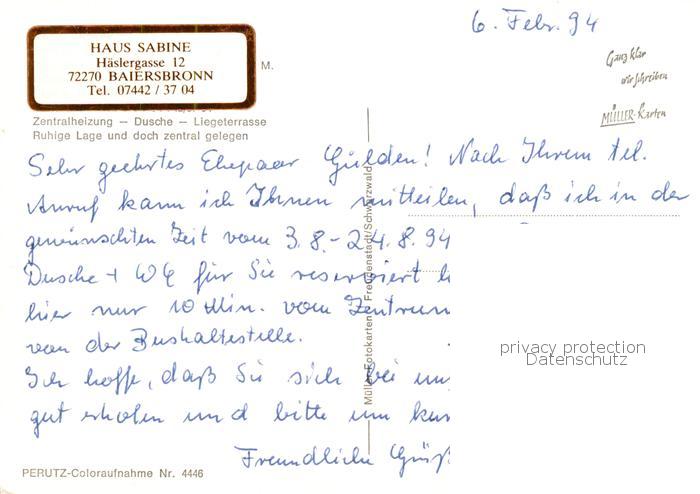 6. Febr. 94
HAUS SABINE
Häslergasse 12
72270 BAIERSBRONN
Tel. 07442 / 37 04
M.
Ganz klar
wir schreiben
MÜLLER-Karten
Zentralheizung — Dusche — Liegeterrasse
Ruhige Lage und doch zentral gelegen
Sehr geehrtes Ehepaar Gülden! Nach Ihrem tel.
Anruf kann ich Ihnen mitteilen, daß ich in der
gewünschten Zeit vom 3.8.-24.8.94
Dusche + WC für Sie reserviert
hier nur 10 Min. vom Zentrum
von der Bushaltestelle.
Ich hoffe, daß Sie sich bei
gut erholen und bitte um
Freundliche
Müller-Fotokarten Freudenstadt/Schwarzwald
privacy protection
Datenschutz
PERUTZ-Coloraufnahme Nr. 4446